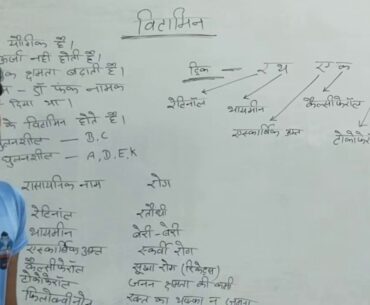 विटामिन
यौगिक है।
ऊर्जा नही होती है।
क क्षमता बढाती है।
- डॉ फंक नामक
दिया था।
के विटामिन होते है।
घुलनशील — B, C
घुलनशील — A, D, E, K
ट्रिक — र थ ए क
रेटिनॉल थायमीन कैल्सीफेरॉल
एस्कार्बिक अम्ल टोकोफे
रासायनिक नाम रोग
रेटिनॉल रतौंधी
थायमीन बेरी-बेरी
एस्कार्बिक अम्ल स्कर्वी रोग
कैल्सीफेरॉल सूखा रोग (रिकेट्स)
टोकोफेरॉल जनन क्षमता की कमी
फिलोक्वीनोन रक्त का थक्का न जमना